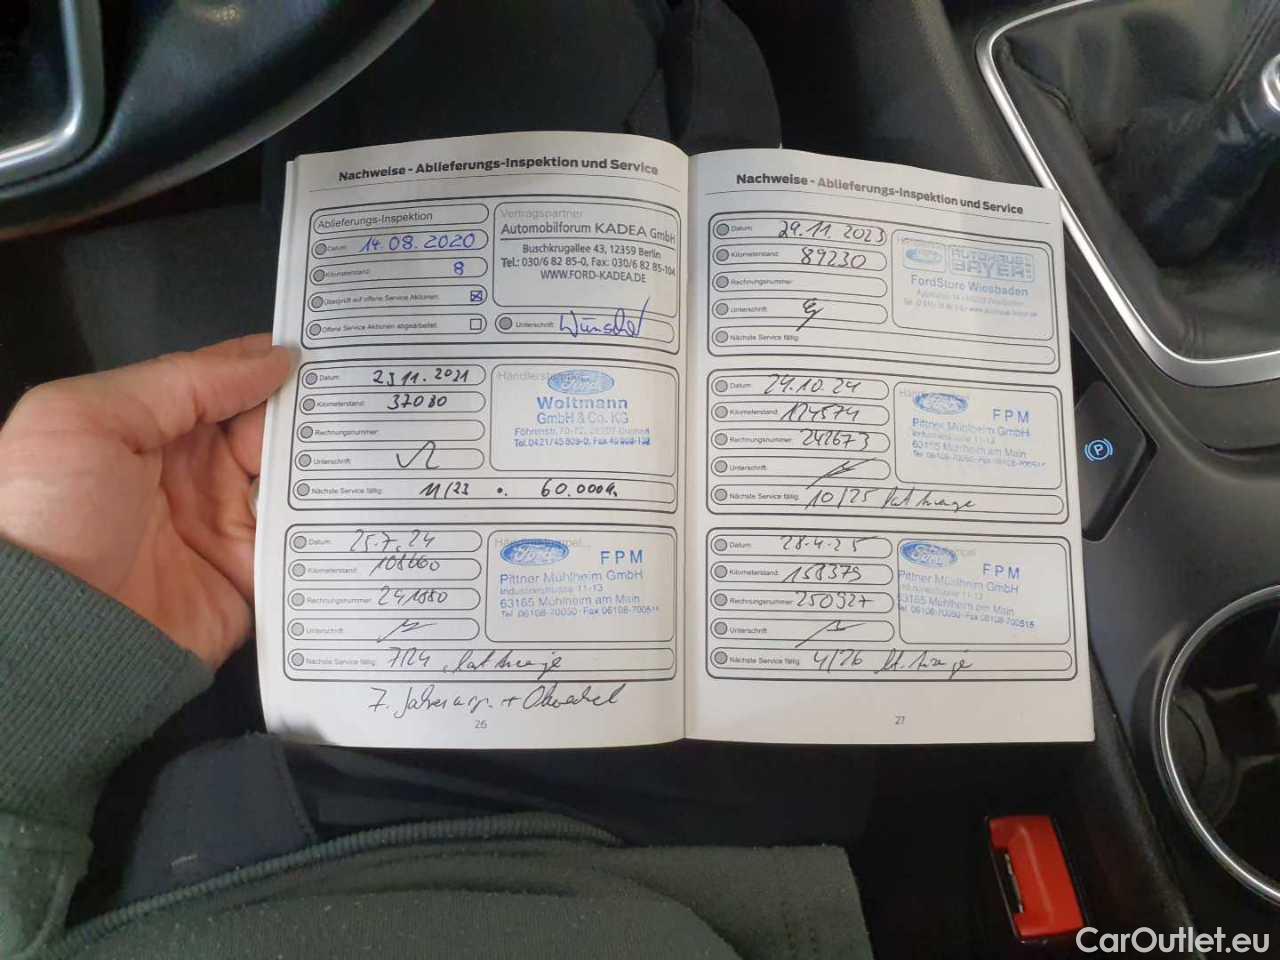 Nachweise - Ablieferungs-Inspektion und Service
Ablieferungs-Inspektion
Datum: 14.08.2020
Kilometerstand: 8
Überprüft auf offene Service Aktionen:
Offene Service Aktionen abgearbeitet:
Vertragspartner
Automobilforum KADEA GmbH
Buschkrugallee 43, 12359 Berlin
Tel.: 030/6 82 85-0, Fax: 030/6 82 85-104
WWW.FORD-KADEA.DE
Unterschrift:
Datum: 23 11. 2021
Kilometerstand: 37080
Rechnungsnummer:
Unterschrift:
Nächste Service fällig: 11/23 60.000
Ford
Woltmann
GmbH & Co. KG
Datum: 25.7.24
Kilometerstand: 108660
Rechnungsnummer: 241880
Unterschrift:
Nächste Service fällig: 7/24
Ford FPM
Pittner Mühlheim GmbH
Industriestrasse 11-13
63165 Mühlheim am Main
Tel. 06108-70050 - Fax 06108-700515
26
Nachweise - Ablieferungs-Inspektion und Service
Datum: 29.11.2023
Kilometerstand: 89230
Rechnungsnummer:
Unterschrift:
Nächste Service fällig:
Ford AUTOHAUS BAYER
FordStore Wiesbaden
Datum: 24.10.24
Kilometerstand: 124574
Rechnungsnummer: 242673
Unterschrift:
Nächste Service fällig: 10/25
Ford FPM
Pittner Mühlheim GmbH
Industriestrasse 11-13
63165 Mühlheim am Main
Tel. 06108-70050 - Fax 06108-700515
Datum: 28.4.25
Kilometerstand: 158379
Rechnungsnummer: 250927
Unterschrift:
Nächste Service fällig: 4/26
Ford FPM
Pittner Mühlheim GmbH
Industriestrasse 11-13
63165 Mühlheim am Main
Tel. 06108-70050 - Fax 06108-700515
27
P
CarOutlet.eu